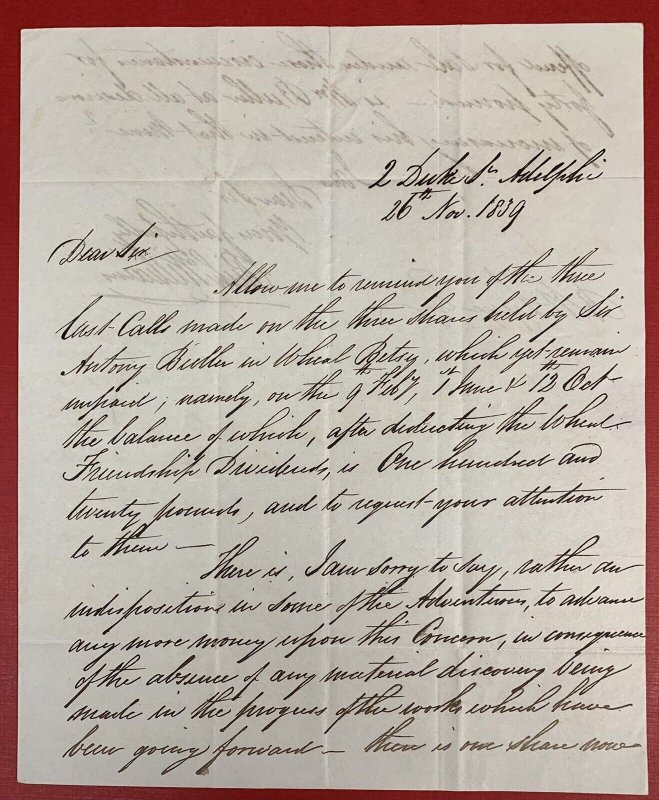 2 Duke St. Adelphi
26th Nov. 1839
Dear Sir
Allow me to remind you of the three
last Calls made on the three shares held by Sir
Antony Buller in Wheal Betsy, which yet remain
unpaid; namely, on the 9th Feby, 1st June & 12 Oct
the balance of which, after deducting the Wheal
Friendship Dividends, is One hundred and
twenty pounds, and to request your attention
to them —
There is, I am sorry to say, rather an
indisposition in some of the Adventurers, to advance
any more money upon this Concern, in consequence
of the absence of any material discovery being
made in the progress of the works which have
been going forward — there is one share now